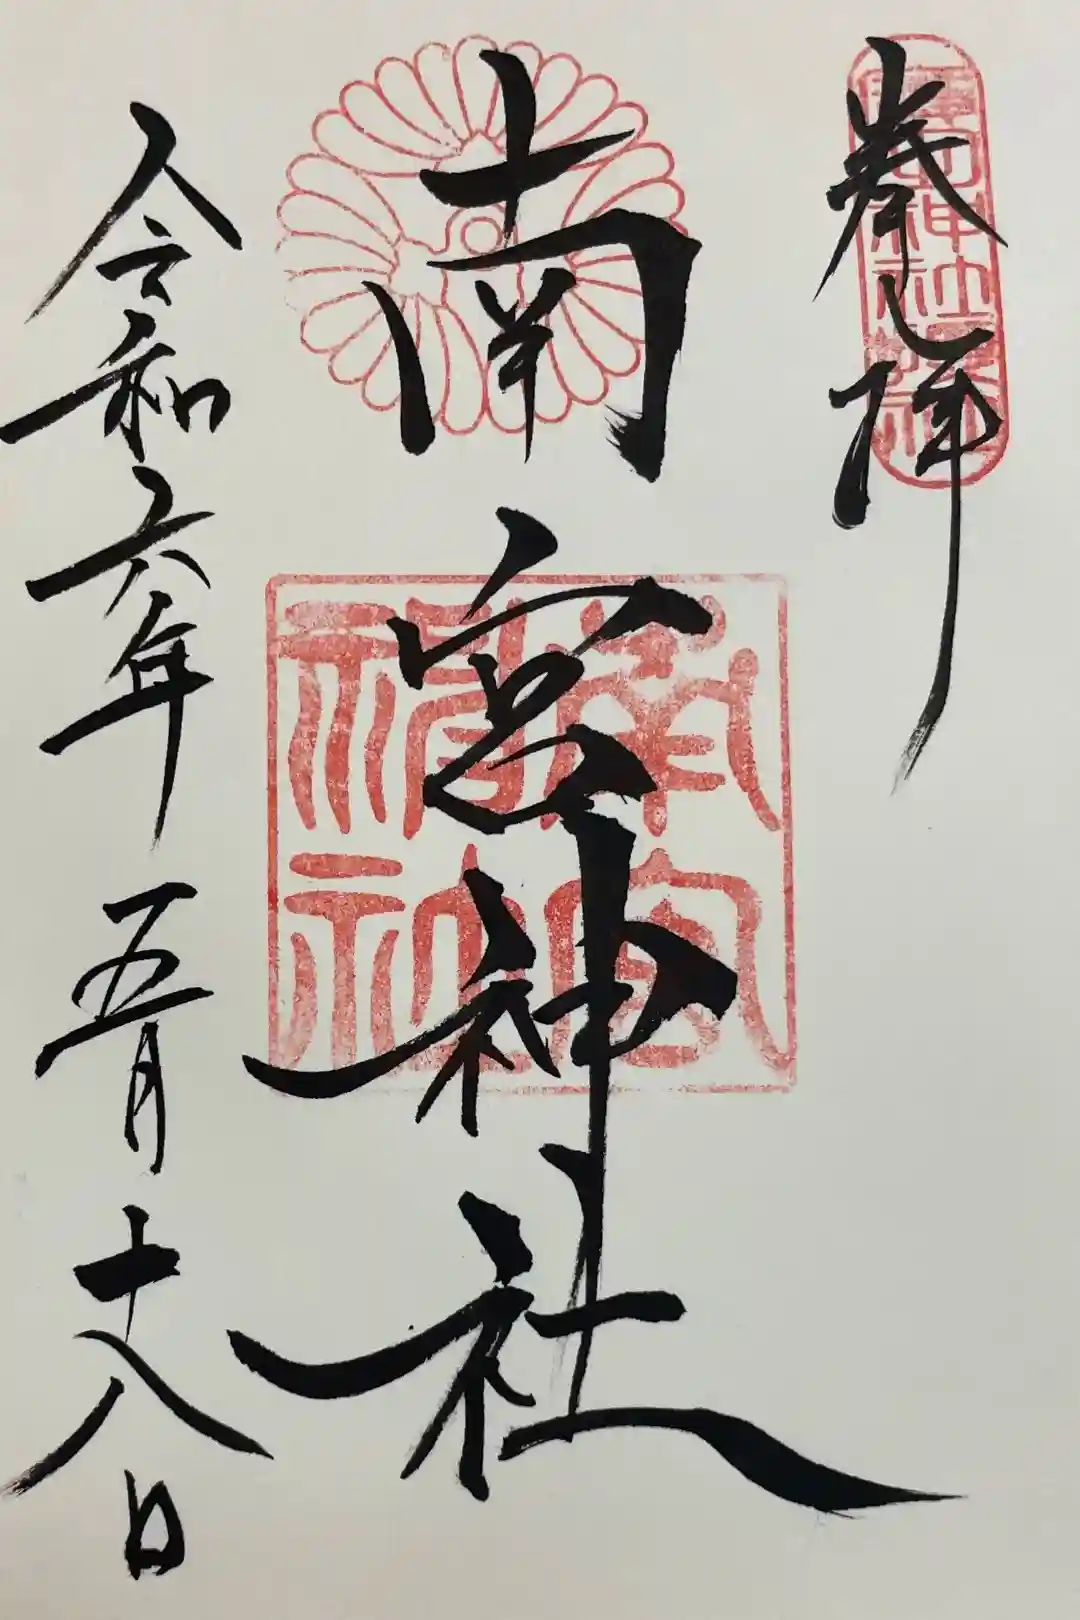 奉拝
南宮神社
南宮
神社
令和六年 五月 十八日